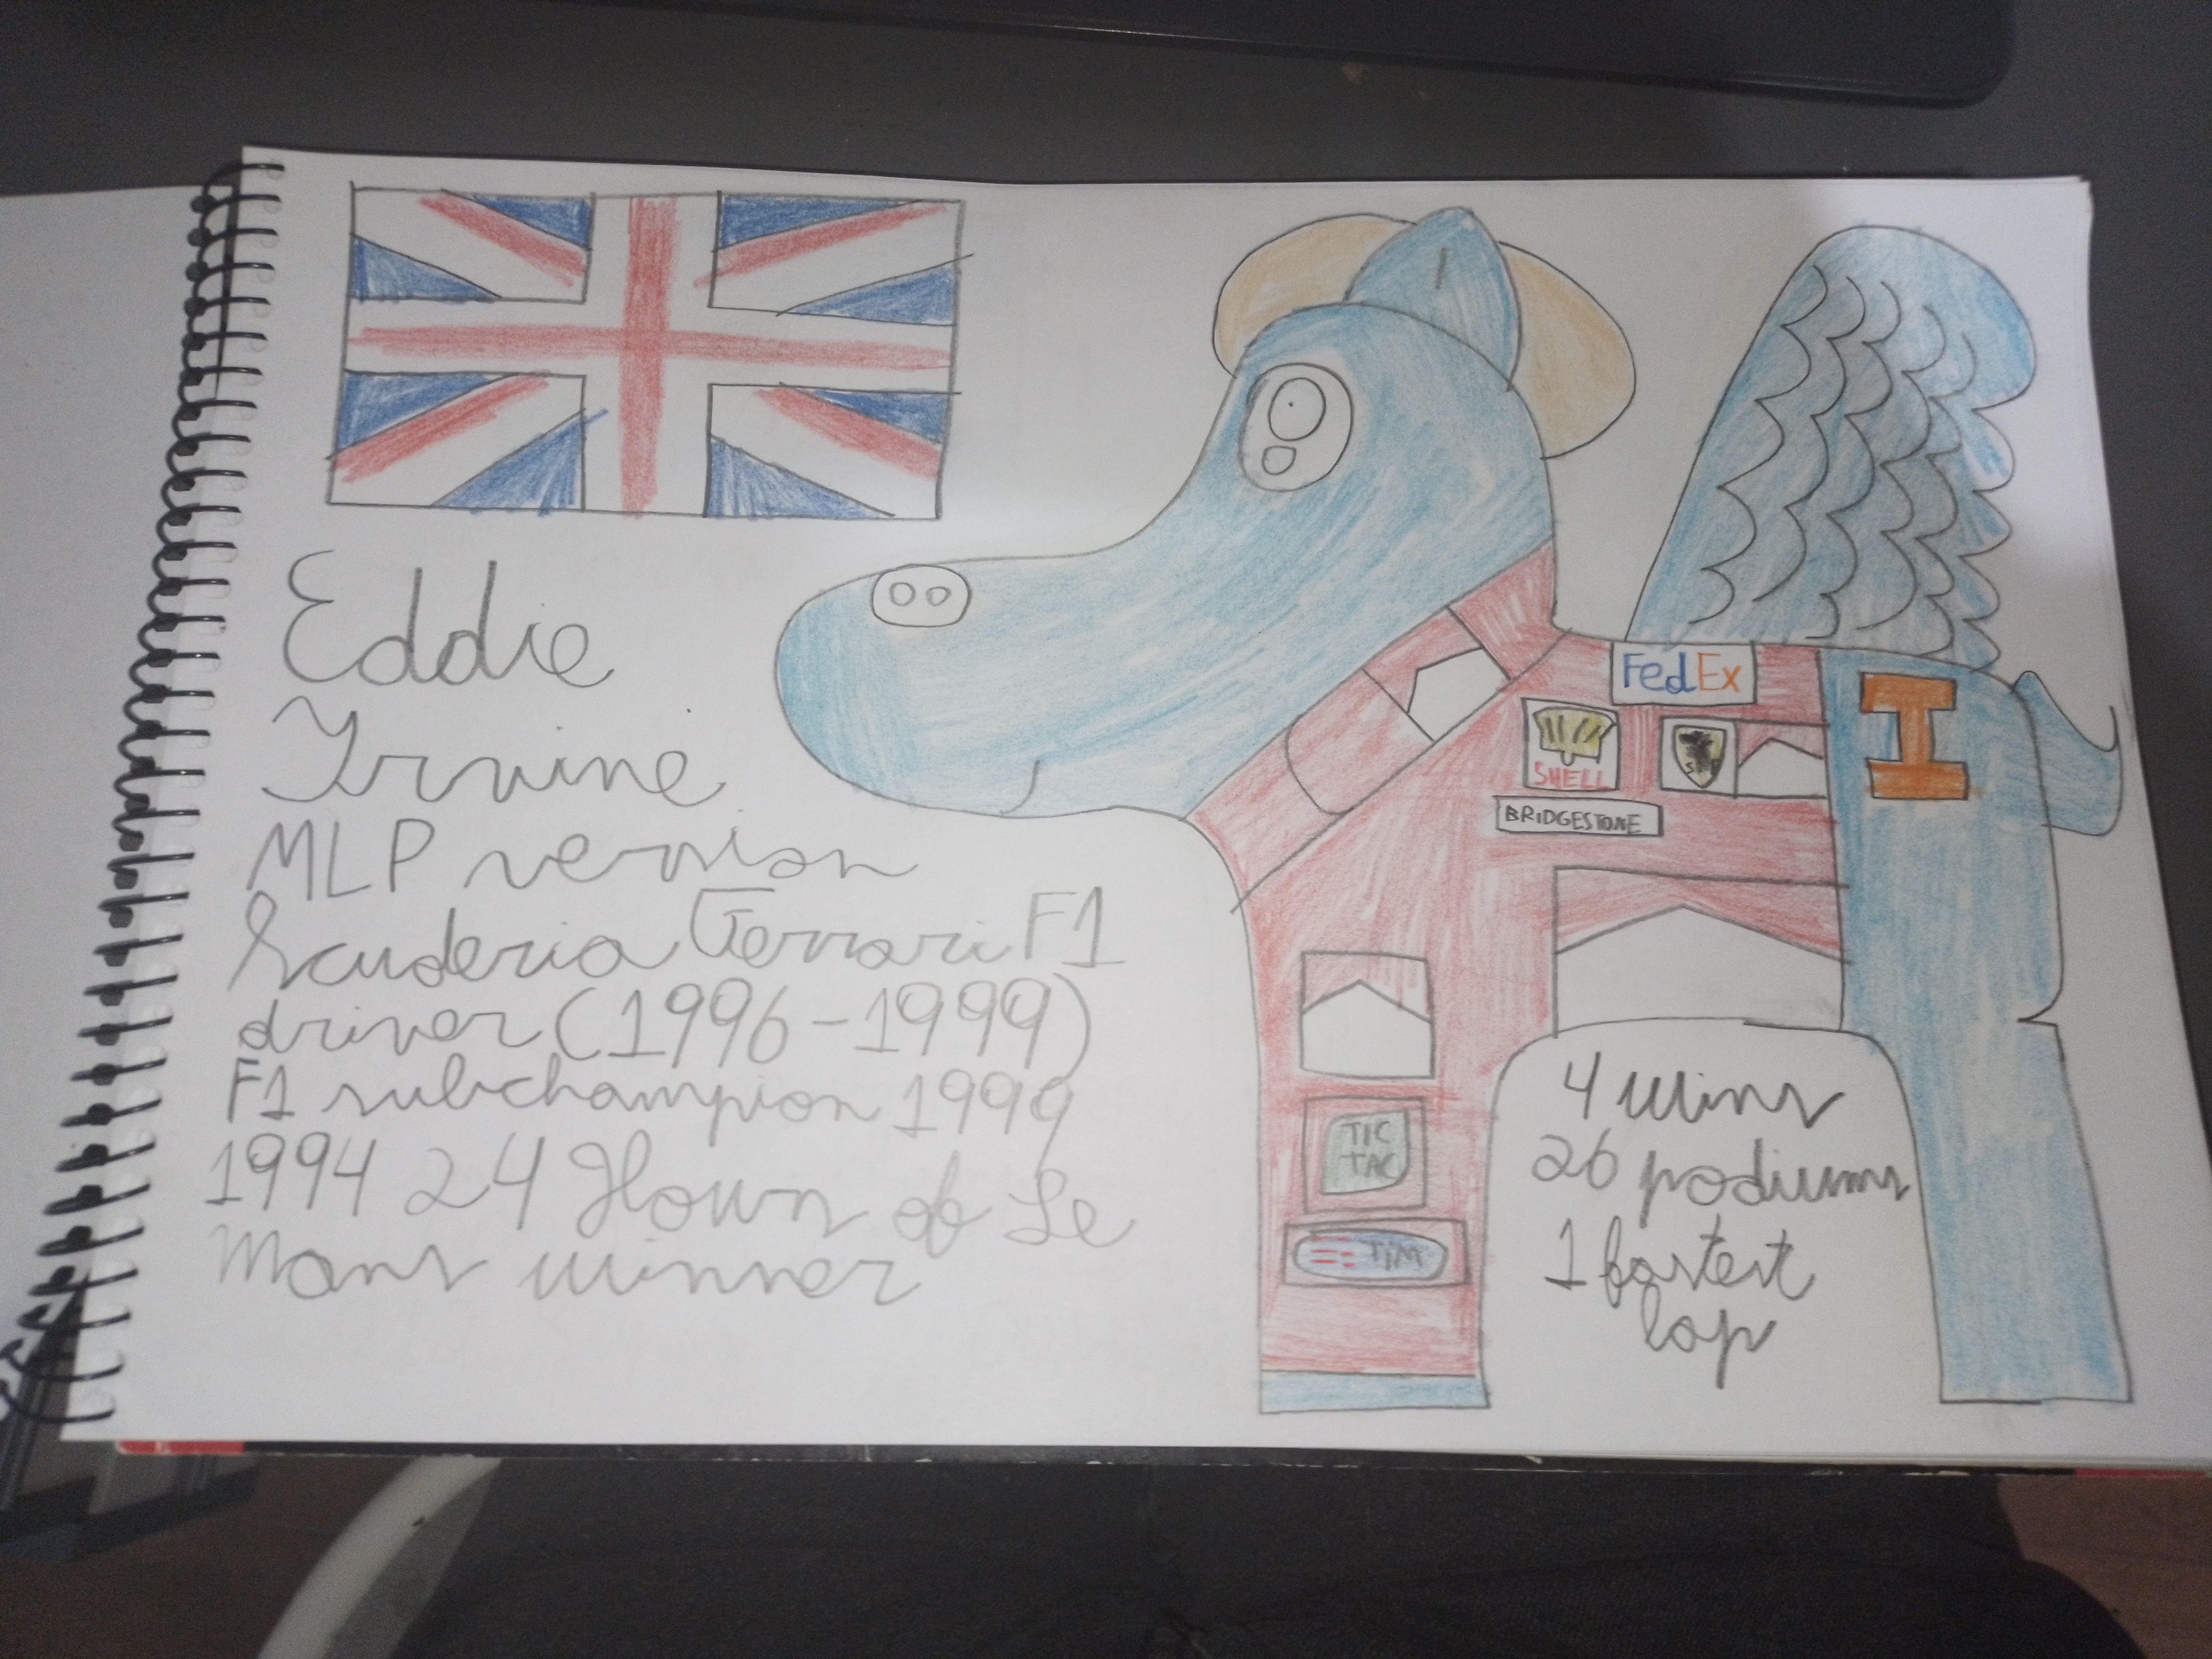 Eddie
Irvine
MLP version
Scuderia Ferrari F1
driver (1996-1999)
F1 subchampion 1999
1994 24 Hours of Le
Mans winner
FedEx
SHELL
SF
BRIDGESTONE
I
TIC
TAC
TIM
4 wins
26 podiums
1 fastest
lap